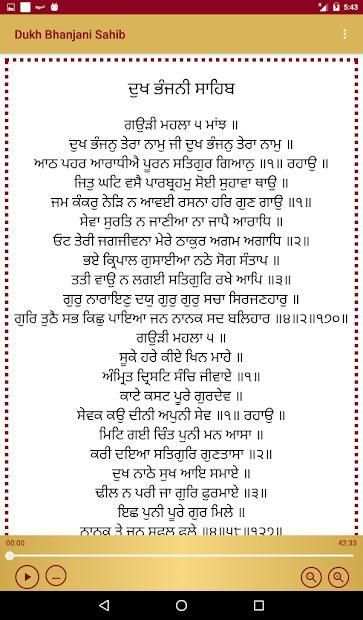 5:43
Dukh Bhanjani Sahib
ਦੁਖ ਭੰਜਨੀ ਸਾਹਿਬ
ਗਉੜੀ ਮਹਲਾ ੫ ਮਾਂਝ ॥
ਦੁਖ ਭੰਜਨੁ ਤੇਰਾ ਨਾਮੁ ਜੀ ਦੁਖ ਭੰਜਨੁ ਤੇਰਾ ਨਾਮੁ ॥
ਆਠ ਪਹਰ ਆਰਾਧੀਐ ਪੂਰਨ ਸਤਿਗੁਰ ਗਿਆਨੁ ॥੧॥ ਰਹਾਉ ॥
ਜਿਤੁ ਘਟਿ ਵਸੈ ਪਾਰਬ੍ਰਹਮੁ ਸੋਈ ਸੁਹਾਵਾ ਥਾਉ ॥
ਜਮ ਕੰਕਰੁ ਨੇੜਿ ਨ ਆਵਈ ਰਸਨਾ ਹਰਿ ਗੁਣ ਗਾਉ ॥੧॥
ਸੇਵਾ ਸੁਰਤਿ ਨ ਜਾਣੀਆ ਨਾ ਜਾਪੈ ਆਰਾਧਿ ॥
ਓਟ ਤੇਰੀ ਜਗਜੀਵਨਾ ਮੇਰੇ ਠਾਕੁਰ ਅਗਮ ਅਗਾਧਿ ॥੨॥
ਭਏ ਕ੍ਰਿਪਾਲ ਗੁਸਾਈਆ ਨਠੇ ਸੋਗ ਸੰਤਾਪ ॥
ਤਤੀ ਵਾਉ ਨ ਲਗਈ ਸਤਿਗੁਰਿ ਰਖੇ ਆਪਿ ॥੩॥
ਗੁਰੁ ਨਾਰਾਇਣੁ ਦਯੁ ਗੁਰੁ ਗੁਰੁ ਸਚਾ ਸਿਰਜਣਹਾਰੁ ॥
ਗੁਰਿ ਤੁਠੈ ਸਭ ਕਿਛੁ ਪਾਇਆ ਜਨ ਨਾਨਕ ਸਦ ਬਲਿਹਾਰ ॥੪॥੨॥੧੭੦॥
ਗਉੜੀ ਮਹਲਾ ੫ ॥
ਸੂਕੇ ਹਰੇ ਕੀਏ ਖਿਨ ਮਾਹੇ ॥
ਅੰਮ੍ਰਿਤ ਦ੍ਰਿਸਟਿ ਸੰਚਿ ਜੀਵਾਏ ॥੧॥
ਕਾਟੇ ਕਸਟ ਪੂਰੇ ਗੁਰਦੇਵ ॥
ਸੇਵਕ ਕਉ ਦੀਨੀ ਅਪੁਨੀ ਸੇਵ ॥੧॥ ਰਹਾਉ ॥
ਮਿਟਿ ਗਈ ਚਿੰਤ ਪੁਨੀ ਮਨ ਆਸਾ ॥
ਕਰੀ ਦਇਆ ਸਤਿਗੁਰਿ ਗੁਣਤਾਸਾ ॥੨॥
ਦੁਖ ਨਾਠੇ ਸੁਖ ਆਇ ਸਮਾਏ ॥
ਢੀਲ ਨ ਪਰੀ ਜਾ ਗੁਰਿ ਫੁਰਮਾਏ ॥੩॥
ਇਛ ਪੁਨੀ ਪੂਰੇ ਗੁਰ ਮਿਲੇ ॥
ਨਾਨਕ ਤੇ ਜਨ ਸੁਫਲ ਫਲੇ ॥੪॥੫੮॥੧੨੭॥
00:00
42:33